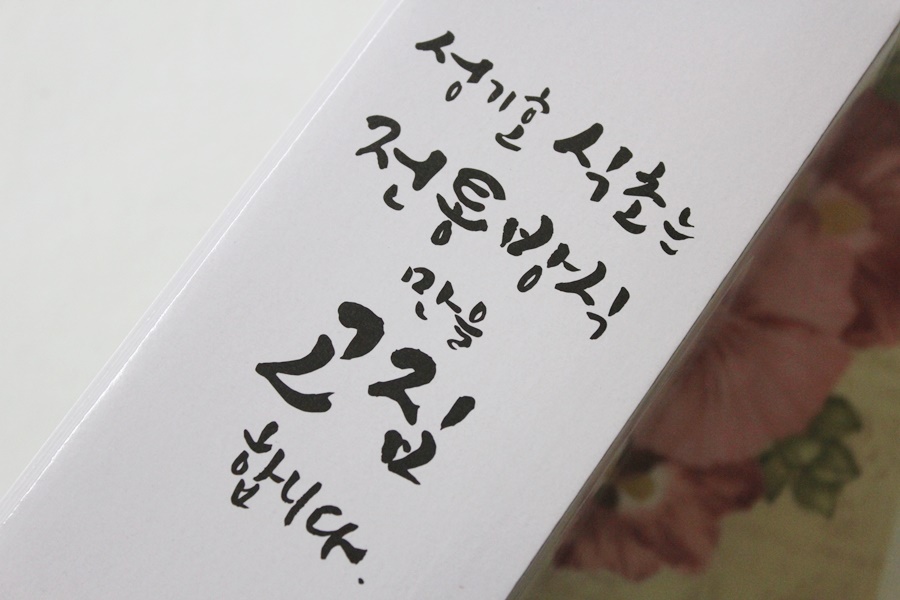 성기호 식초는
전통방식
만을
고집
합니다.